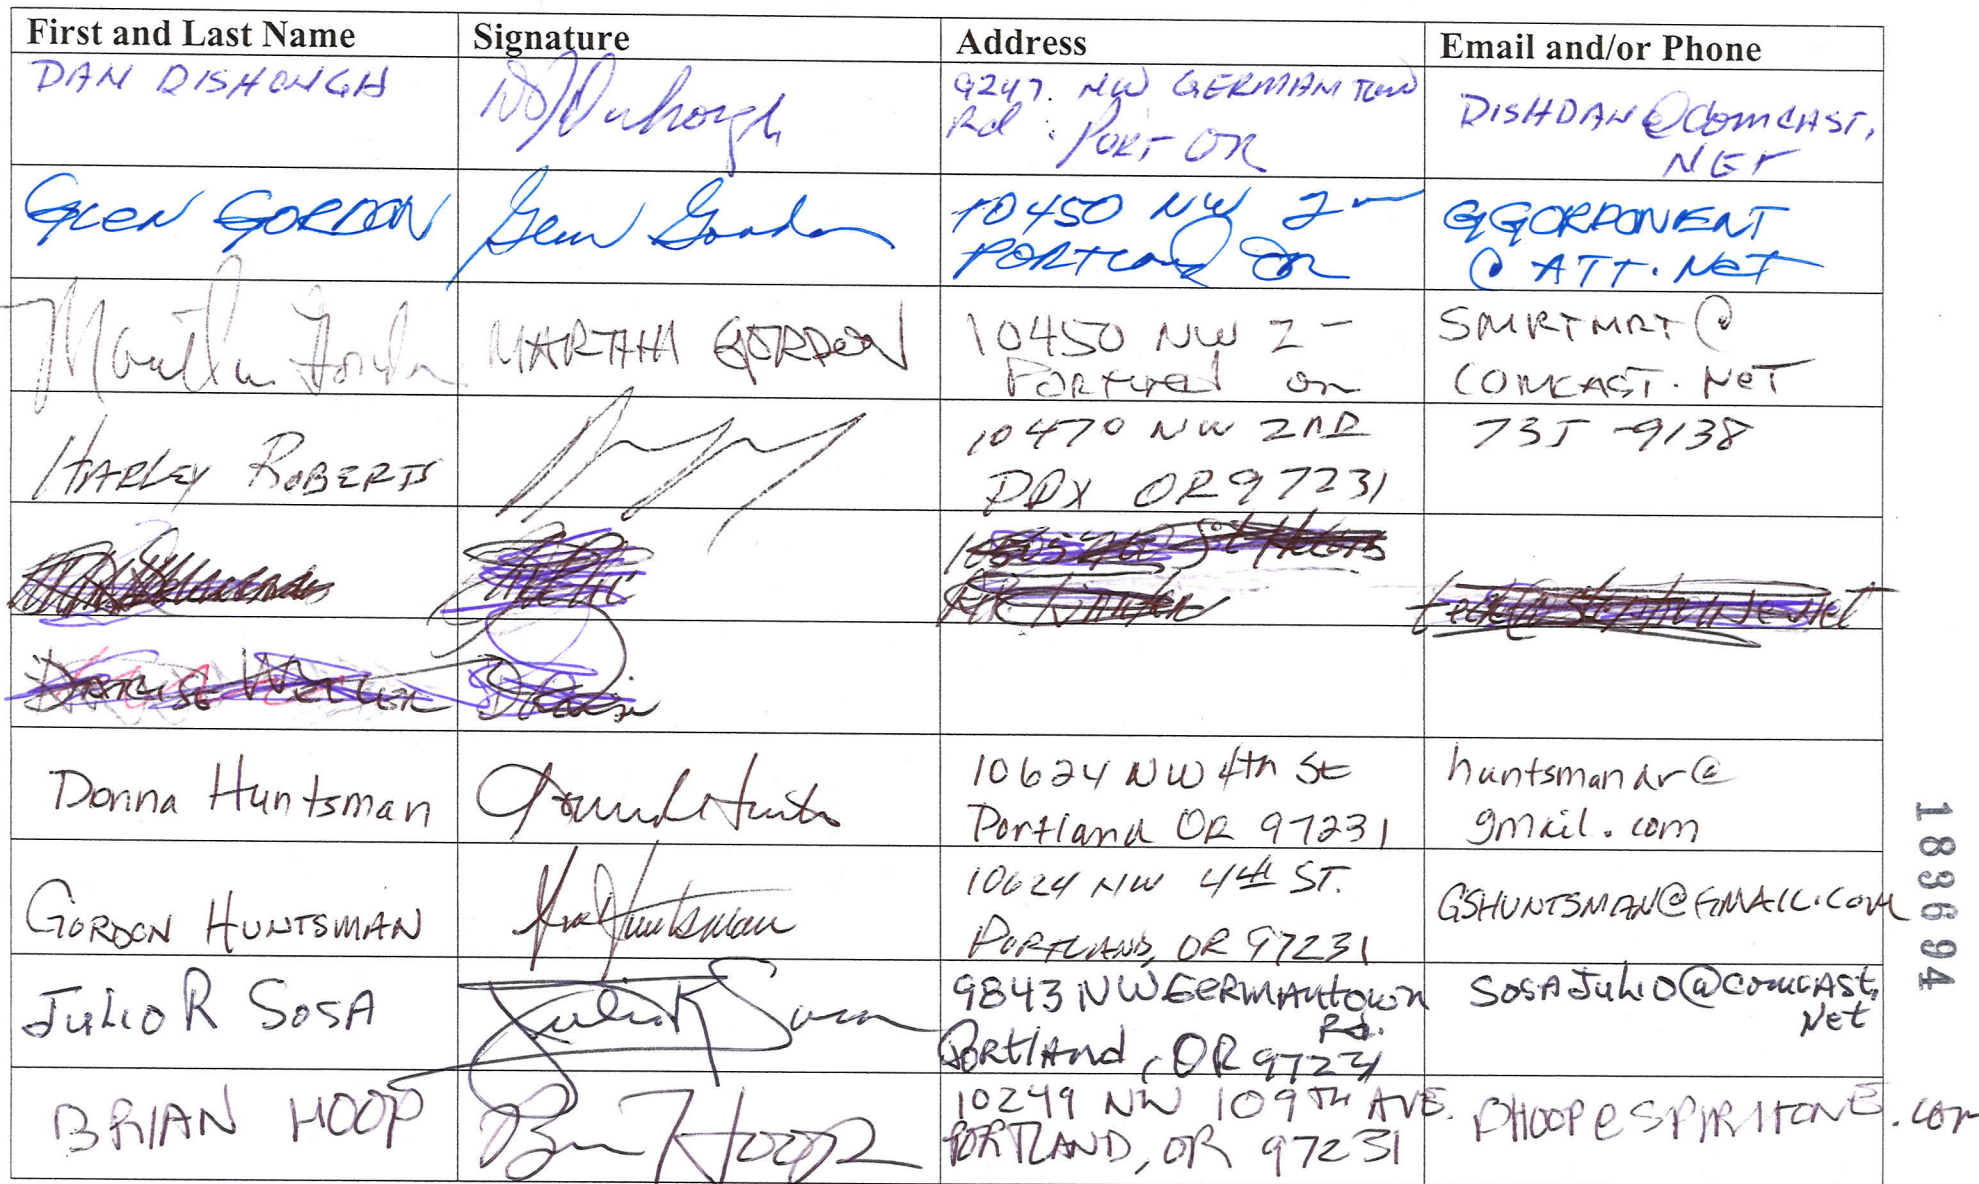 First and Last Name
Signature
Address
Email and/or Phone
DAN DISHONGH
9247. NW GERMANTOWN
Rd. PORT OR
DISHDAN@COMCAST.
NET
GLEN GORDON
Glen Gordon
10450 NW 2
PORTLAND OR
GGORDONENT
@ ATT. NET
Martha Gordon
MARTHA GORDON
10450 NW 2
PORTLAND OR
SMRTMRT@
COMCAST. NET
HARLEY ROBERTS
10470 NW 2ND
PDX OR 97231
735-9138
Donna Huntsman
10624 NW 4th St
Portland OR 97231
huntsmandr@
gmail.com
GORDON HUNTSMAN
Huntsman
10624 NW 4th ST.
PORTLAND, OR 97231
GSHUNTSMAN@GMAIL.COM
JULIO R SOSA
Julio R Sosa
9843 NW GERMANtown
Rd.
PORTLAnd, OR 97231
SOSAJULIO@COMCAST.
Net
BRIAN HOOP
Hoop
10249 NW 109TH AVE.
PORTLAND, OR 97231
BHOOP@SPIRITONE.com
183694